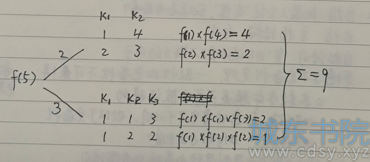 K₁ K₂
1 4 f(1)×f(4)=4
2 3 f(2)×f(3)=2
2
f(5)
Σ=9
3
K₁ K₂ K₃
1 1 3 f(1)×f(1)×f(3)=2
1 2 2 f(1)×f(2)×f(2)=1
城东书院
www.cdsy.xyz